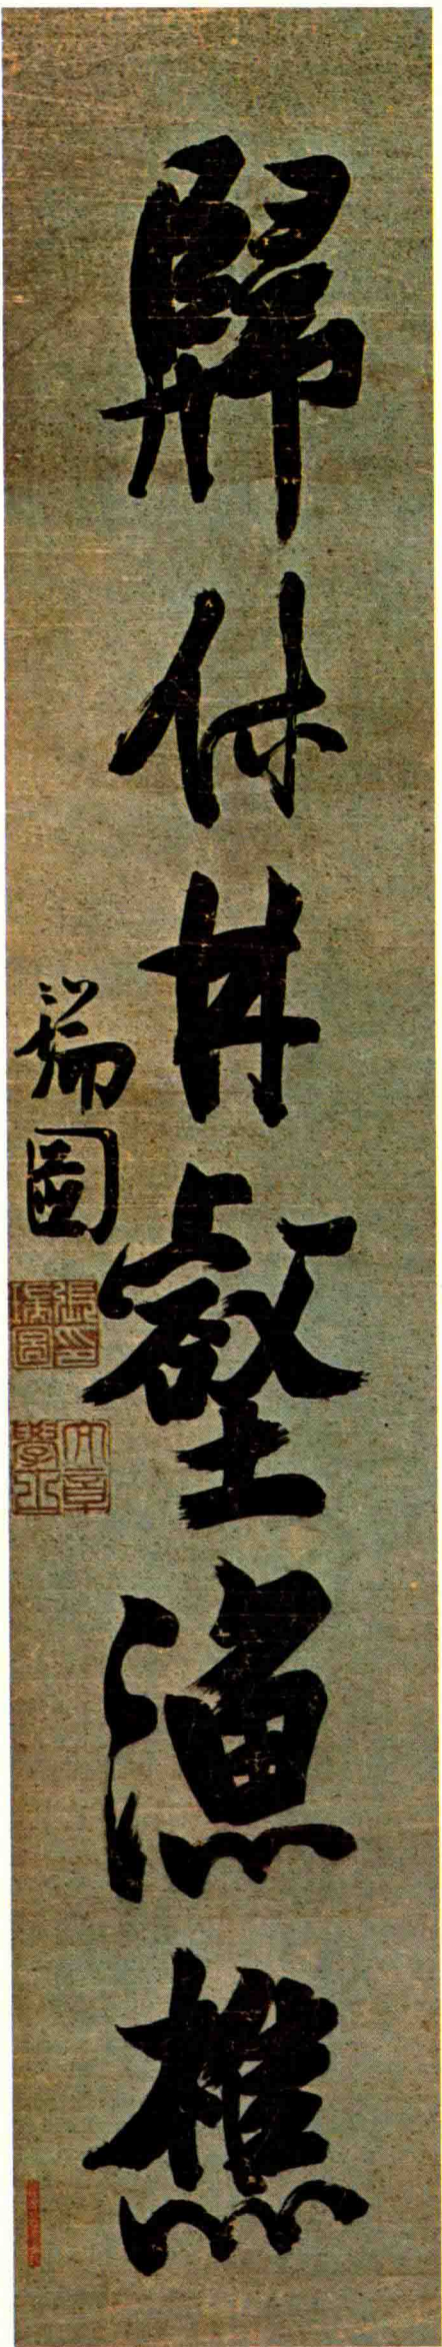 歸休壑漁樵
瑞圖
張瑞圖印